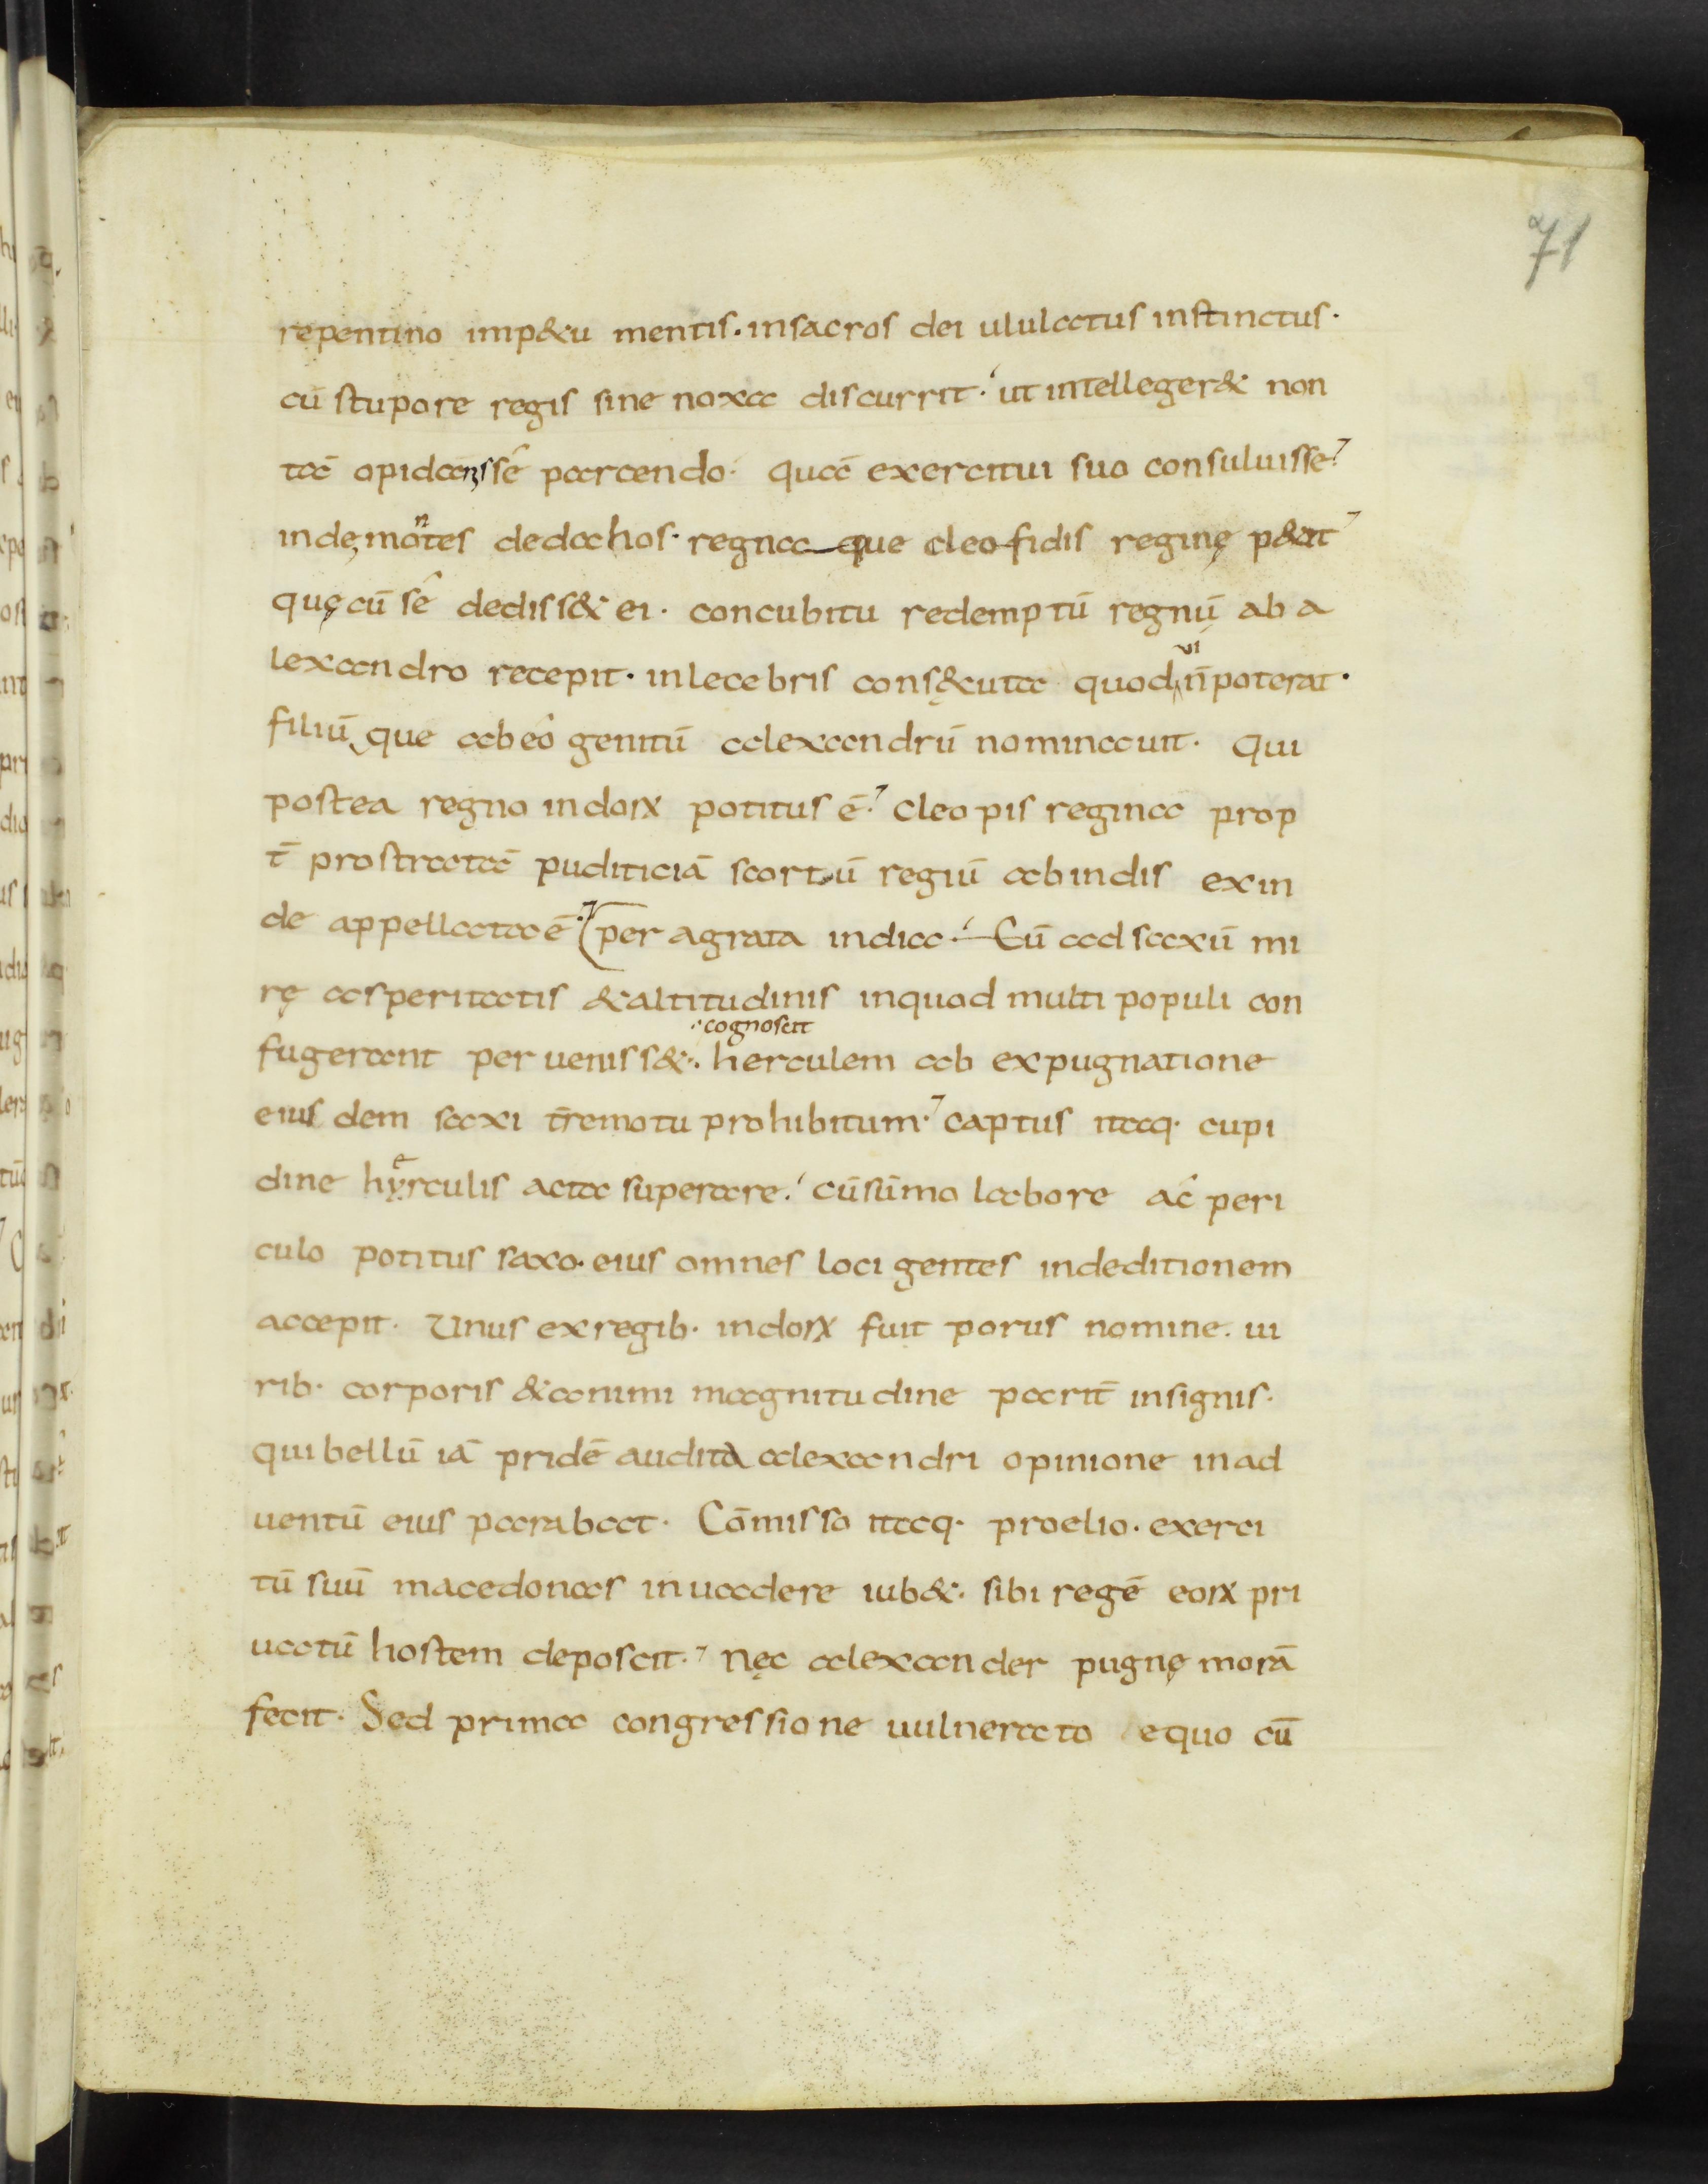 71
repentino imp&u mentis. insacros dei ululatus instinctus.
cū stupore regis sine noxa discurrit. ut intelleger& non
tā opidanis sē parcendo. quā exercitui suo consuluisse.
inde montes dedachos. regnaque cleofidis reginę p&it
quęcū sē dediss& ei. concubitu redemptū regnū ab a
lexandro recepit. inlecebris cons&cuta quod ui n̄ poterat.
filiū que abeo genitū alexandrū nominauit. Qui
postea regno indoꝝ potitus ē. Cleopis regina prop
t̄ prostratā puditiciā scortū regiū abindis exin
de appellata ē. per agrata india. Cū adsaxū mi
rę asperitatis &altitudinis inquod multi populi con
cognoscit
fugerant per ueniss&. herculem ab expugnatione
eius dem saxi t̄remotu prohibitum. Captus itaq. cupi
dine hyerculis acta superare. cūsūmo labore ac peri
culo potitus saxo. eius omnes loci gentes indeditionem
accepit. Unus exregib. indoꝝ fuit porus nomine. ui
rib. corporis &animi magnitudine parit̄ insignis.
qui bellū iā pridē audita alexandri opinione inad
uentū eius parabat. Cōmisso itaq. proelio. exerci
tū suū macedonas inuadere iub&. sibi regē eoꝝ pri
uatū hostem deposcit. Nęc alexander pugnę morā
fecit. Sed prima congressione uulnerato equo cū